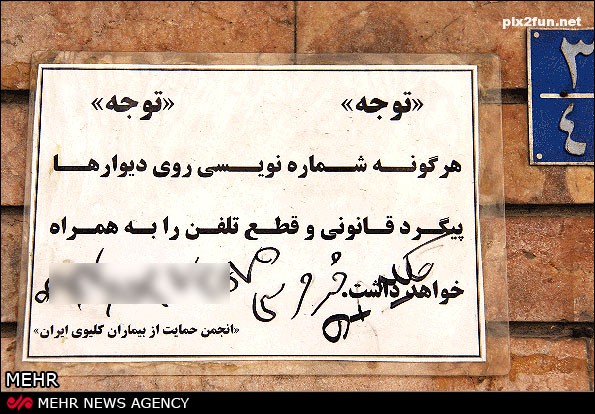 pix2fun.net
«توجه» «توجه»
هرگونه شماره نویسی روی دیوارها
پیگرد قانونی و قطع تلفن را به همراه
خواهد داشت.
«انجمن حمایت از بیماران کلیوی ایران»
۳
۴
MEHR
MEHR NEWS AGENCY